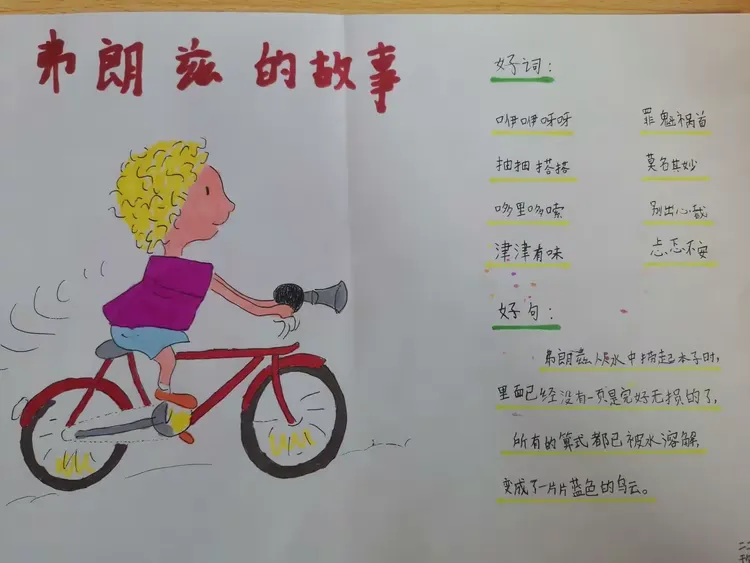 弗朗兹的故事
好词：
咿咿呀呀 罪魁祸首
抽抽搭搭 莫名其妙
哆里哆嗦 别出心裁
津津有味 忐忑不安
好句：
弗朗兹从水中捞起本子时，
里面已经没有一页是完好无损的了，
所有的算式都已被水溶解，
变成了一片片蓝色的乌云。